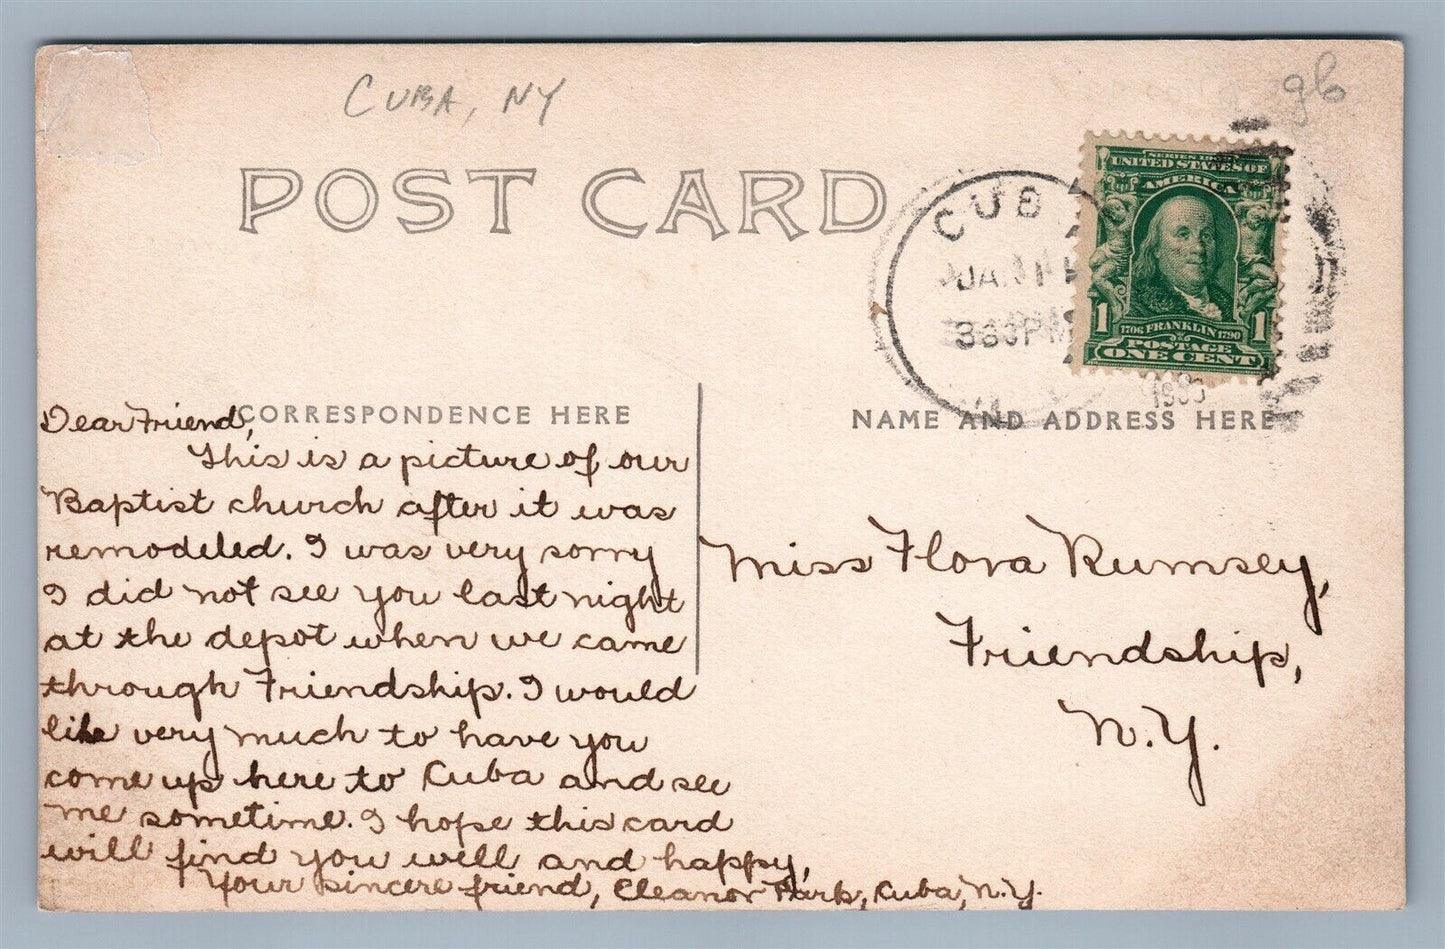 CUBA, NY
gb
POST CARD
CUB
JAN 1
3 30 PM
SERIES 1902
UNITED STATES OF
AMERICA
1 1
1706 FRANKLIN 1790
POSTAGE
ONE CENT
CORRESPONDENCE HERE
NAME AND ADDRESS HERE
Dear Friend,
This is a picture of our
Baptist church after it was
remodeled. I was very sorry
I did not see you last night
at the depot when we came
through Friendship. I would
like very much to have you
come up here to Cuba and see
me sometime. I hope this card
will find you well and happy,
Your sincere friend, Eleanor Park, Cuba, N.Y.
Miss Flora Rumsey,
Friendship,
N.Y.